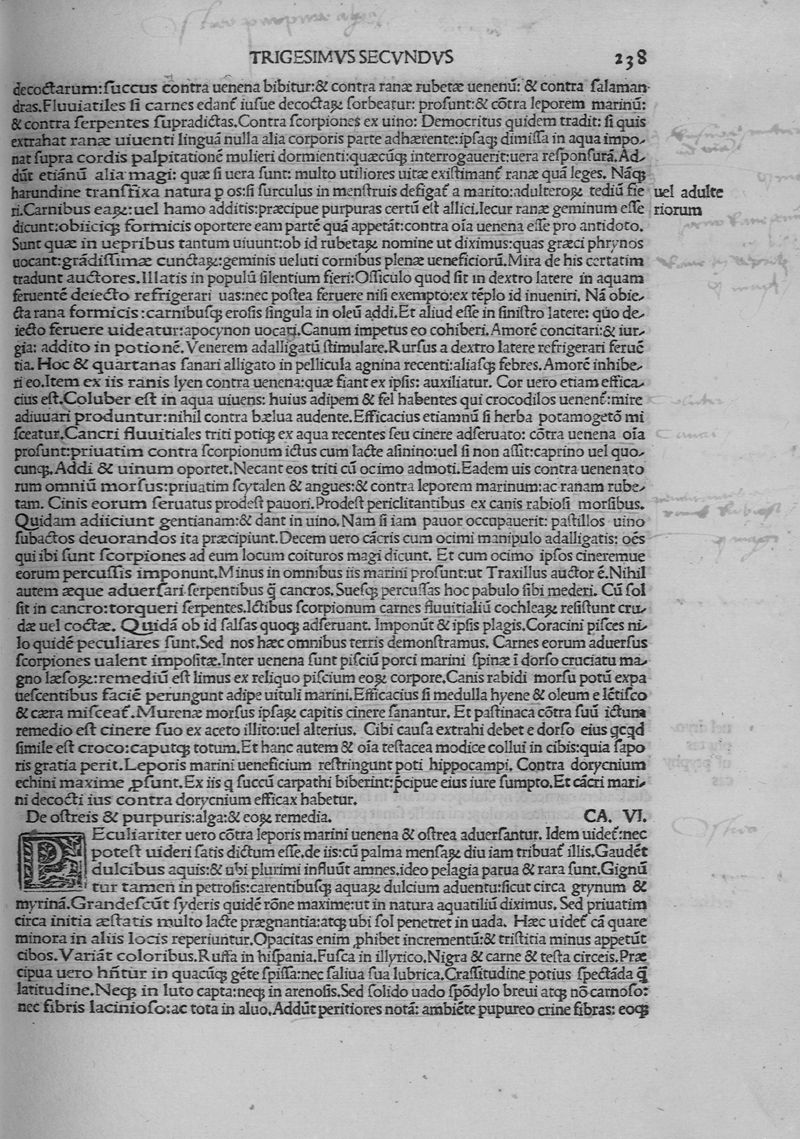 TRIGESIMVS SECVNDVS 238
decoctarum:succus contra uenena bibitur:& contra ranæ rubetæ uenenū: & contra salaman-
dras.Fluuiatiles si carnes edant᷑ iusue decoctaꝝ sorbeatur: prosunt:& cōtra leporem marinū:
& contra serpentes supradictas.Contra scorpiones ex uino: Democritus quidem tradit: si quis
extrahat ranæ uiuenti linguā nulla alia corporis parte adhærente:ipsaꝗ dimissa in aqua impo-
nat supra cordis palpitationē mulieri dormienti:quæcūꝗ interrogauerit:uera respōsurā.Ad-
dūt etiānū alia magi: quæ si uera sunt: multo utiliores uitæ existimant᷑ ranæ quā leges. Nāꝗ
harundine transfixa natura p os:si surculus in menstruis defigat᷑ a marito:adulteroꝝ tediū fie
uel adulte
ri.Carnibus eaꝝ:uel hamo additis:præcipue purpuras certū est allici.Iecur ranæ geminum esse
riorum
dicunt:obiiciꝗ formicis oportere eam partē quā appetāt:contra oīa uenena esse pro antidoto.
Sunt quæ in uepribus tantum uiuunt:ob id rubetaꝝ nomine ut diximus:quas græci phrynos
uocant:grādissimæ cunctaꝝ:geminis ueluti cornibus plenæ ueneficiorū.Mira de his certatim
tradunt auctores.Illatis in populū silentium fieri:Officulo quod sit in dextro latere in aquam
feruentē deiecto refrigerari uas:nec postea feruere nisi exempto:ex tēplo id inueniri. Nā obie-
cta rana formicis:carnibusꝗ erosis singula in oleū addi.Et aliud esse in sinistro latere: quo de-
iecto feruere uideatur:apocynon uocati.Canum impetus eo cohiberi.Amorē concitari:& iur-
gia: addito in potionē.Venerem adalligatū stimulare.Rursus a dextro latere refrigerari feruē
tia.Hoc & quartanas sanari alligato in pellicula agnina recenti:aliasꝗ febres.Amorē inhibe-
ri eo.Item ex iis ranis lyen contra uenena:quæ fiant ex ipsis: auxiliatur. Cor uero etiam effica-
cius est.Coluber est in aqua uiuens: huius adipem & fel habentes qui crocodilos uenent᷑:mire
adiuuari produntur:nihil contra bælua audente.Efficacius etiamnū si herba potamogetō mi
sceatur.Cancri fluuitiales triti potiꝗ ex aqua recentes seu cinere adseruato: cōtra uenena oīa
prosunt:priuatim contra scorpionum ictus cum lacte asinino:uel si non assit:caprino uel quo-
cunꝗ.Addi & uinum oportet.Necant eos triti cū ocimo admoti.Eadem uis contra uenenato
rum omniū morsus:priuatim scytalen & angues:& contra leporem marinum:ac ranam rube-
tam. Cinis eorum seruatus prodest pauori.Prodest periclitantibus ex canis rabiosi morsibus.
Quidam adiiciunt gentianam:& dant in uino.Nam si iam pauor occupauerit: pastillos uino
subactos deuorandos ita præcipiunt.Decem uero cācris cum ocimi manipulo adalligatis: oēs
qui ibi sunt scorpiones ad eum locum coituros magi dicunt. Et cum ocimo ipsos cineremue
eorum percussis imponunt.Minus in omnibus iis marini prosunt:ut Traxillus auctor ē.Nihil
autem æque aduersari serpentibus q̄ cancros.Suesꝗ percussas hoc pabulo sibi mederi. Cū sol
sit in cancro:torqueri serpentes.Ictibus scorpionum carnes fluuitialiū cochleaꝝ resistunt cru-
dæ uel coctæ. Quidā ob id salsas quoꝗ adseruant. Imponūt & ipsis plagis.Coracini pisces ni-
lo quidē peculiares sunt.Sed nos hæc omnibus terris demonstramus. Carnes eorum aduersus
scorpiones ualent impositæ.Inter uenena sunt pisciū porci marini spinæ ī dorso cruciatu ma-
gno læsoꝝ:remediū est limus ex reliquo piscium eoꝝ corpore.Canis rabidi morsu potū expa
uescentibus faciē perungunt adipe uituli marini.Efficacius si medulla hyene & oleum e lētisco
& cæra misceat᷑.Murenæ morsus ipsaꝝ capitis cinere sanantur. Et pastinaca cōtra suū ictum
remedio est cinere suo ex aceto illito:uel alterius. Cibi causa extrahi debet e dorso eius qcqd
simile est croco:caputꝗ totum.Et hanc autem & oīa testacea modice collui in cibis:quia sapo
ris gratia perit.Leporis marini ueneficium restringunt poti hippocampi. Contra dorycnium
echini maxime ꝓsunt.Ex iis q succū carpathi biberint:p̄cipue eius iure sumpto.Et cācri mari-
ni decocti ius contra dorycnium efficax habetur.
De ostreis & purpuris:alga:& eoꝝ remedia. CA. VI.
PEculiariter uero cōtra leporis marini uenena & ostrea aduersantur. Idem uidet᷑:nec
potest uideri satis dictum esse.de iis:cū palma mensaꝝ diu iam tribuat᷑ illis.Gaudēt
dulcibus aquis:& ubi plurimi influūt amnes.ideo pelagia parua & rara sunt.Gignū
tur tamen in petrosis:carentibusꝗ aquaꝝ dulcium aduentu:sicut circa grynum &
myrinā.Grandescūt syderis quidē rōne maxime:ut in natura aquatiliū diximus. Sed priuatim
circa initia æstatis multo lacte prægnantia:atꝗ ubi sol penetret in uada. Hæc uidet᷑ cā quare
minora in aliis locis reperiuntur.Opacitas enim ꝓhibet incrementū:& tristitia minus appetūt
cibos.Variāt coloribus.Ruffa in hispania.Fusca in illyrico.Nigra & carne & testa circeis.Præ
cipua uero hn̄tur in quacūꝗ gēte spissa:nec saliua sua lubrica.Crassitudine potius spectāda q̄
latitudine.Neꝗ in luto capta:neꝗ in arenosis.Sed solido uado spōdylo breui atꝗ nō carnoso:
nec fibris lacinioso:ac tota in aluo.Addūt peritiores notā: ambiēte pupureo crine fibras: eoꝗ